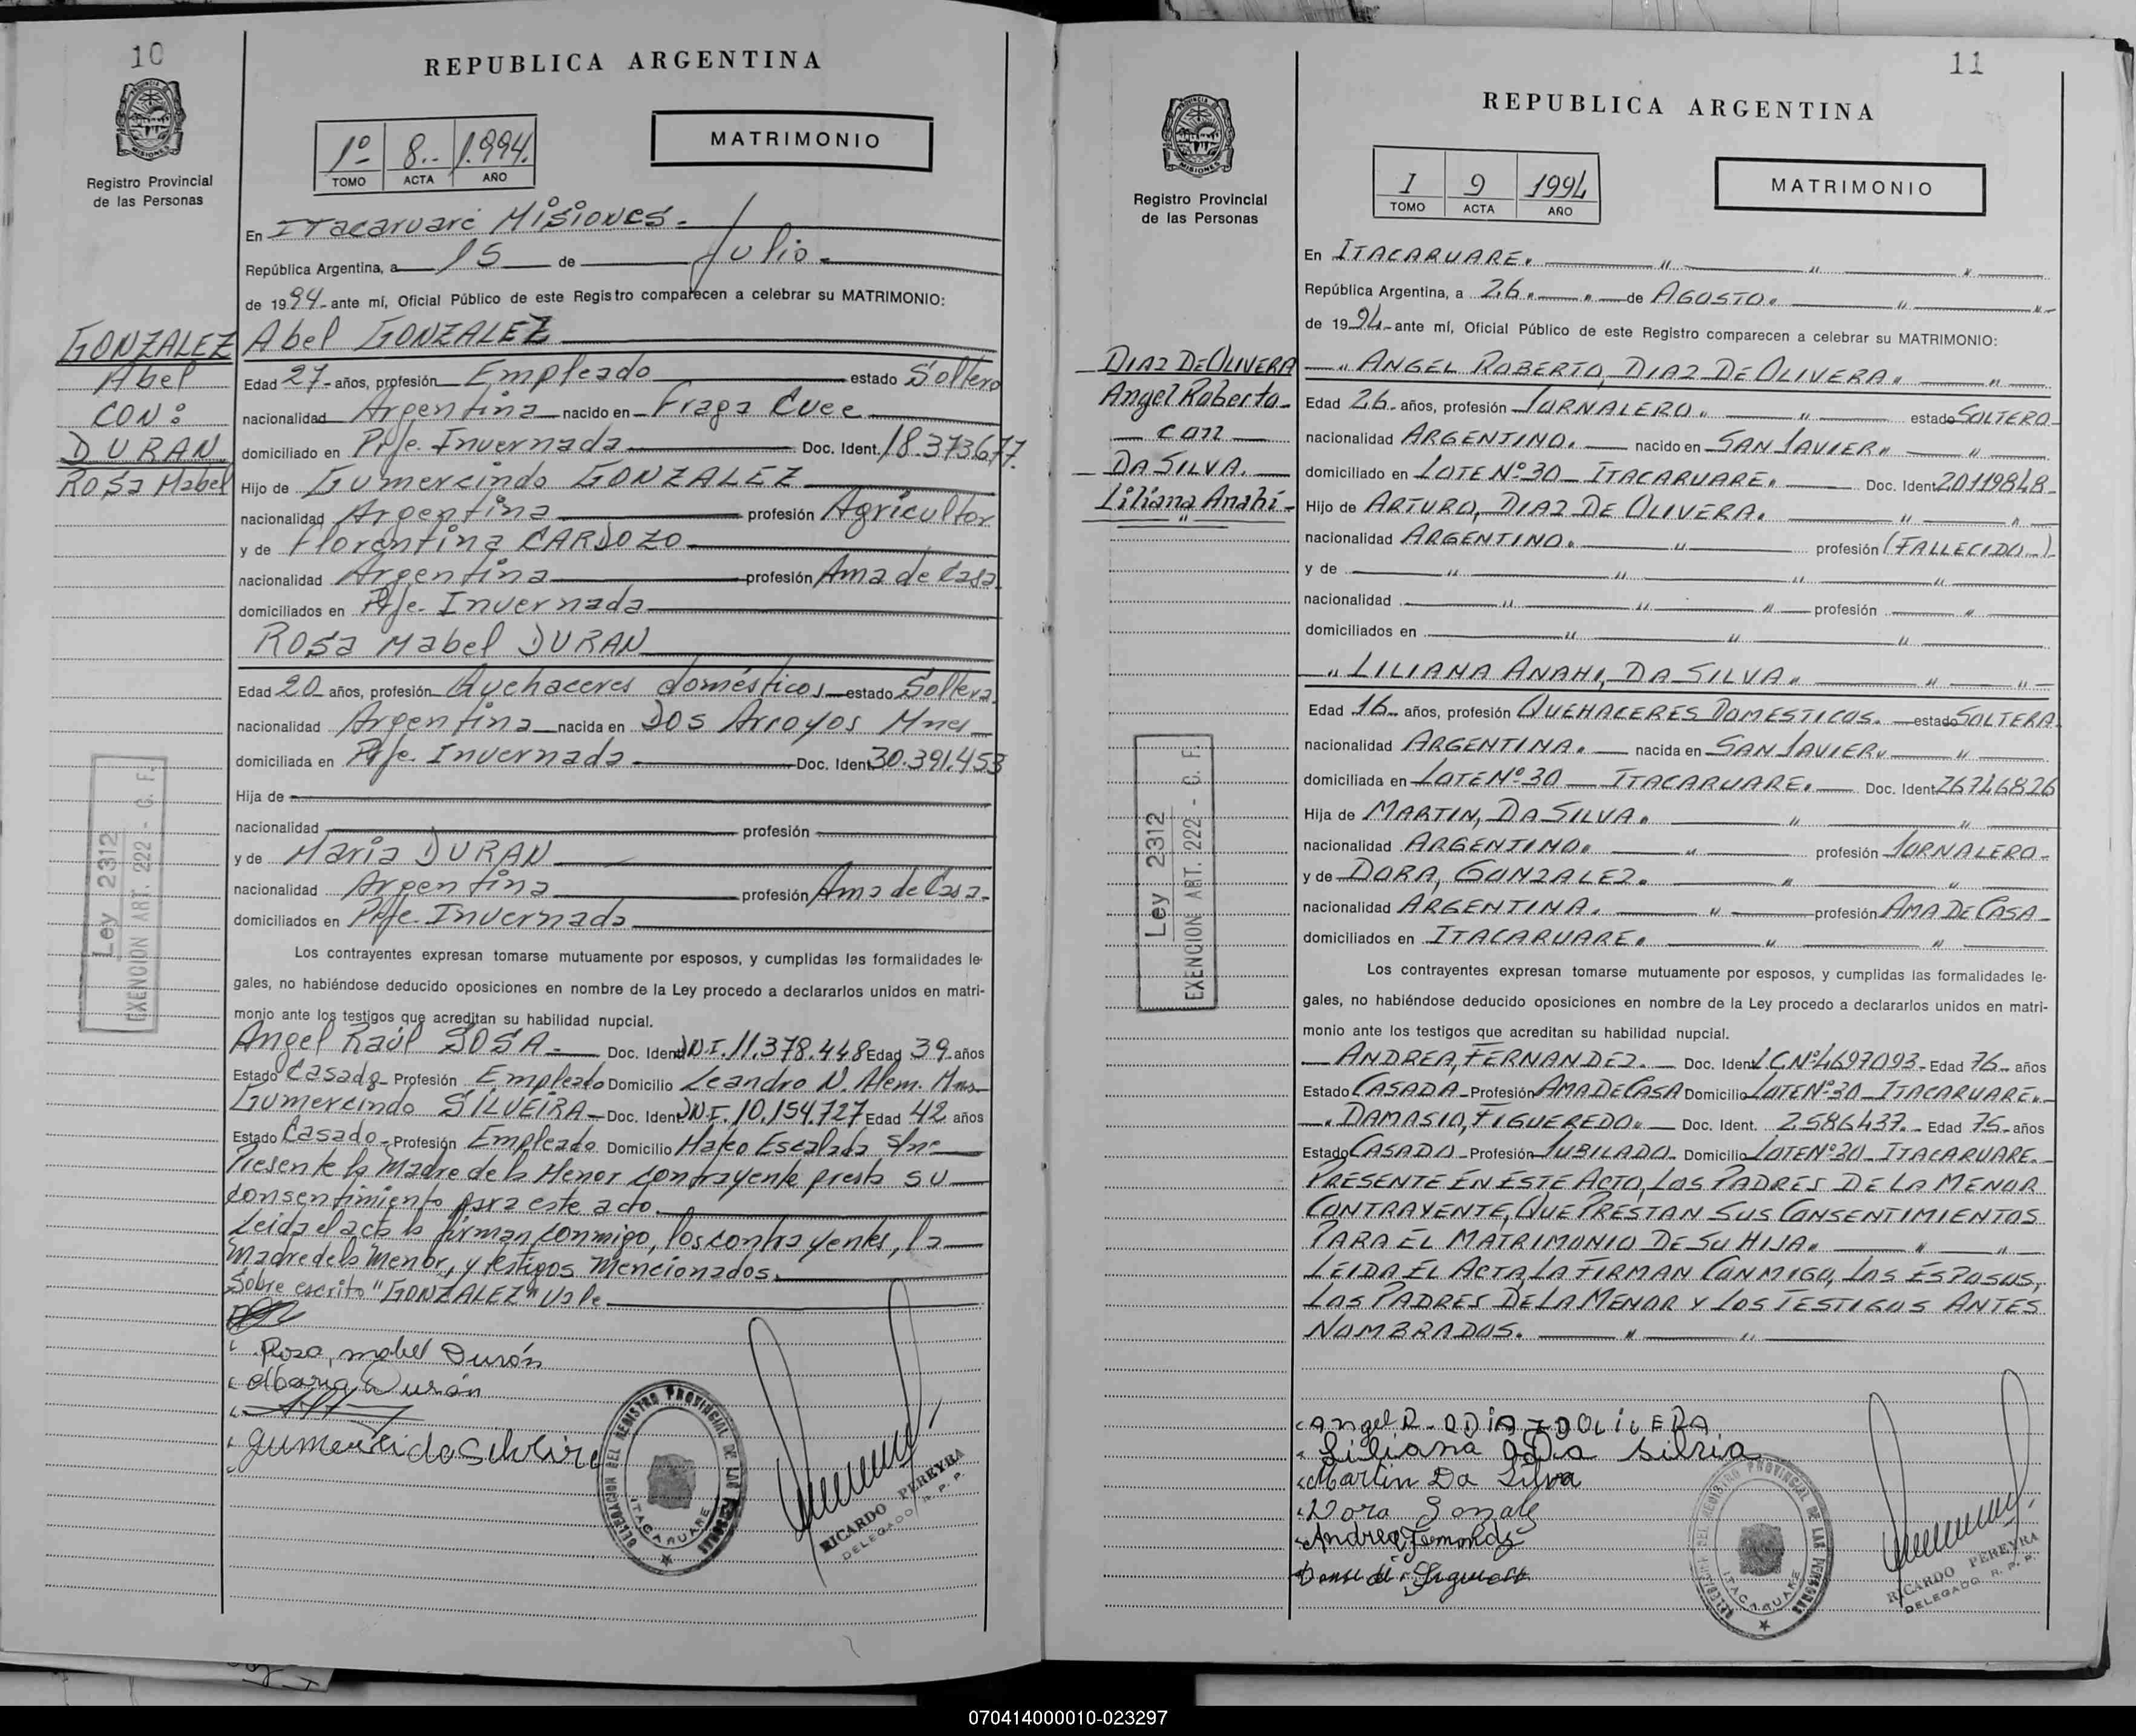 10
REPUBLICA ARGENTINA
PROVINCIA DE MISIONES
Registro Provincial
de las Personas
1º 8.. 1.994.
TOMO ACTA AÑO
MATRIMONIO
En Itacaruaré Misiones.
República Argentina, a 15 de Julio.
de 1994 ante mí, Oficial Público de este Registro comparecen a celebrar su MATRIMONIO:
GONZALEZ
Abel
CON:
DURAN
Rosa Mabel
Abel GONZALEZ
Edad 27 años, profesión Empleado estado Soltero
nacionalidad Argentina nacido en Fraga Cuee
domiciliado en Pje. Invernada Doc. Ident. 18.373677.
Hijo de Gumercindo GONZALEZ
nacionalidad Argentina profesión Agricultor
y de Florentina CARDOZO
nacionalidad Argentina profesión Ama de Casa
domiciliados en Pje. Invernada
Rosa Mabel DURAN
Edad 20 años, profesión Quehaceres domésticos estado Soltera
nacionalidad Argentina nacida en Dos Arroyos Mnes
domiciliada en Pje. Invernada Doc. Ident 30.391.453
Hija de
nacionalidad profesión
y de Maria DURAN
nacionalidad Argentina profesión Ama de Casa
domiciliados en Pje. Invernada
Ley 2312
EXENCION ART. 222 - C. F.
Los contrayentes expresan tomarse mutuamente por esposos, y cumplidas las formalidades le-
gales, no habiéndose deducido oposiciones en nombre de la Ley procedo a declararlos unidos en matri-
monio ante los testigos que acreditan su habilidad nupcial.
Angel Raúl SOSA Doc. Ident D.N.I. 11.378.448 Edad 39 años
Estado Casado Profesión Empleado Domicilio Leandro N. Alem. Mns
Gumercindo SILVEIRA Doc. Ident D.N.I. 10.154.727 Edad 42 años
Estado Casado Profesión Empleado Domicilio Mateo Escalada
Presente la Madre de la Menor contrayente presta su
consentimiento para este acto.
Leida el acta la firman conmigo, los contrayentes, la
madre de la menor, y testigos mencionados.
Sobre escrito "GONZALEZ" Vale
Rosa, mabel Durón
Maria Durán
gumercindo Silveira
DELEGACION DEL REGISTRO PROVINCIAL DE LAS PERSONAS
ITACARUARE
RICARDO PEREYRA
DELEGADO R. P. P.
11
REPUBLICA ARGENTINA
PROVINCIA DE MISIONES
Registro Provincial
de las Personas
I 9 1994
TOMO ACTA AÑO
MATRIMONIO
En ITACARUARE.
República Argentina, a 26. de AGOSTO.
de 1994 ante mí, Oficial Público de este Registro comparecen a celebrar su MATRIMONIO:
DIAZ DE OLIVERA
Angel Roberto
con
DA SILVA.
Liliana Anahí
ANGEL ROBERTO, DIAZ DE OLIVERA.
Edad 26 años, profesión JORNALERO. estado SOLTERO
nacionalidad ARGENTINO. nacido en SAN JAVIER
domiciliado en LOTE Nº 30 ITACARUARE. Doc. Ident 20119848
Hijo de ARTURO, DIAZ DE OLIVERA.
nacionalidad ARGENTINO. profesión (FALLECIDO)
y de
nacionalidad profesión
domiciliados en
LILIANA ANAHI, DA SILVA.
Edad 16 años, profesión QUEHACERES DOMESTICOS. estado SOLTERA
nacionalidad ARGENTINA. nacida en SAN JAVIER
domiciliada en LOTE Nº 30 ITACARUARE. Doc. Ident 26746826
Hija de MARTIN, DA SILVA.
nacionalidad ARGENTINO. profesión JORNALERO
y de DORA, GONZALEZ.
nacionalidad ARGENTINA. profesión AMA DE CASA
domiciliados en ITACARUARE.
Ley 2312
EXENCION ART. 222 - C. F.
Los contrayentes expresan tomarse mutuamente por esposos, y cumplidas las formalidades le-
gales, no habiéndose deducido oposiciones en nombre de la Ley procedo a declararlos unidos en matri-
monio ante los testigos que acreditan su habilidad nupcial.
ANDREA, FERNANDEZ. Doc. Ident L.C. Nº 4697093 Edad 76 años
Estado CASADA Profesión AMA DE CASA Domicilio LOTE Nº 30 ITACARUARE.
DAMASIO, FIGUEREDO. Doc. Ident. 2586437. Edad 75 años
Estado CASADO Profesión JUBILADO. Domicilio LOTE Nº 30 ITACARUARE.
PRESENTE EN ESTE ACTO, LOS PADRES DE LA MENOR
CONTRAYENTE, QUE PRESTAN SUS CONSENTIMIENTOS
PARA EL MATRIMONIO DE SU HIJA.
LEIDA EL ACTA, LA FIRMAN CONMIGO, LOS ESPOSOS,
LOS PADRES DE LA MENOR Y LOS TESTIGOS ANTES
NOMBRADOS.
Angel R.
Liliana
Martin Da Silva
Dora Gonzalez
Andrea Fernandez
DELEGACION DEL REGISTRO PROVINCIAL DE LAS PERSONAS
ITACARUARE
RICARDO PEREYRA
DELEGADO R. P. P.
070414000010-023297